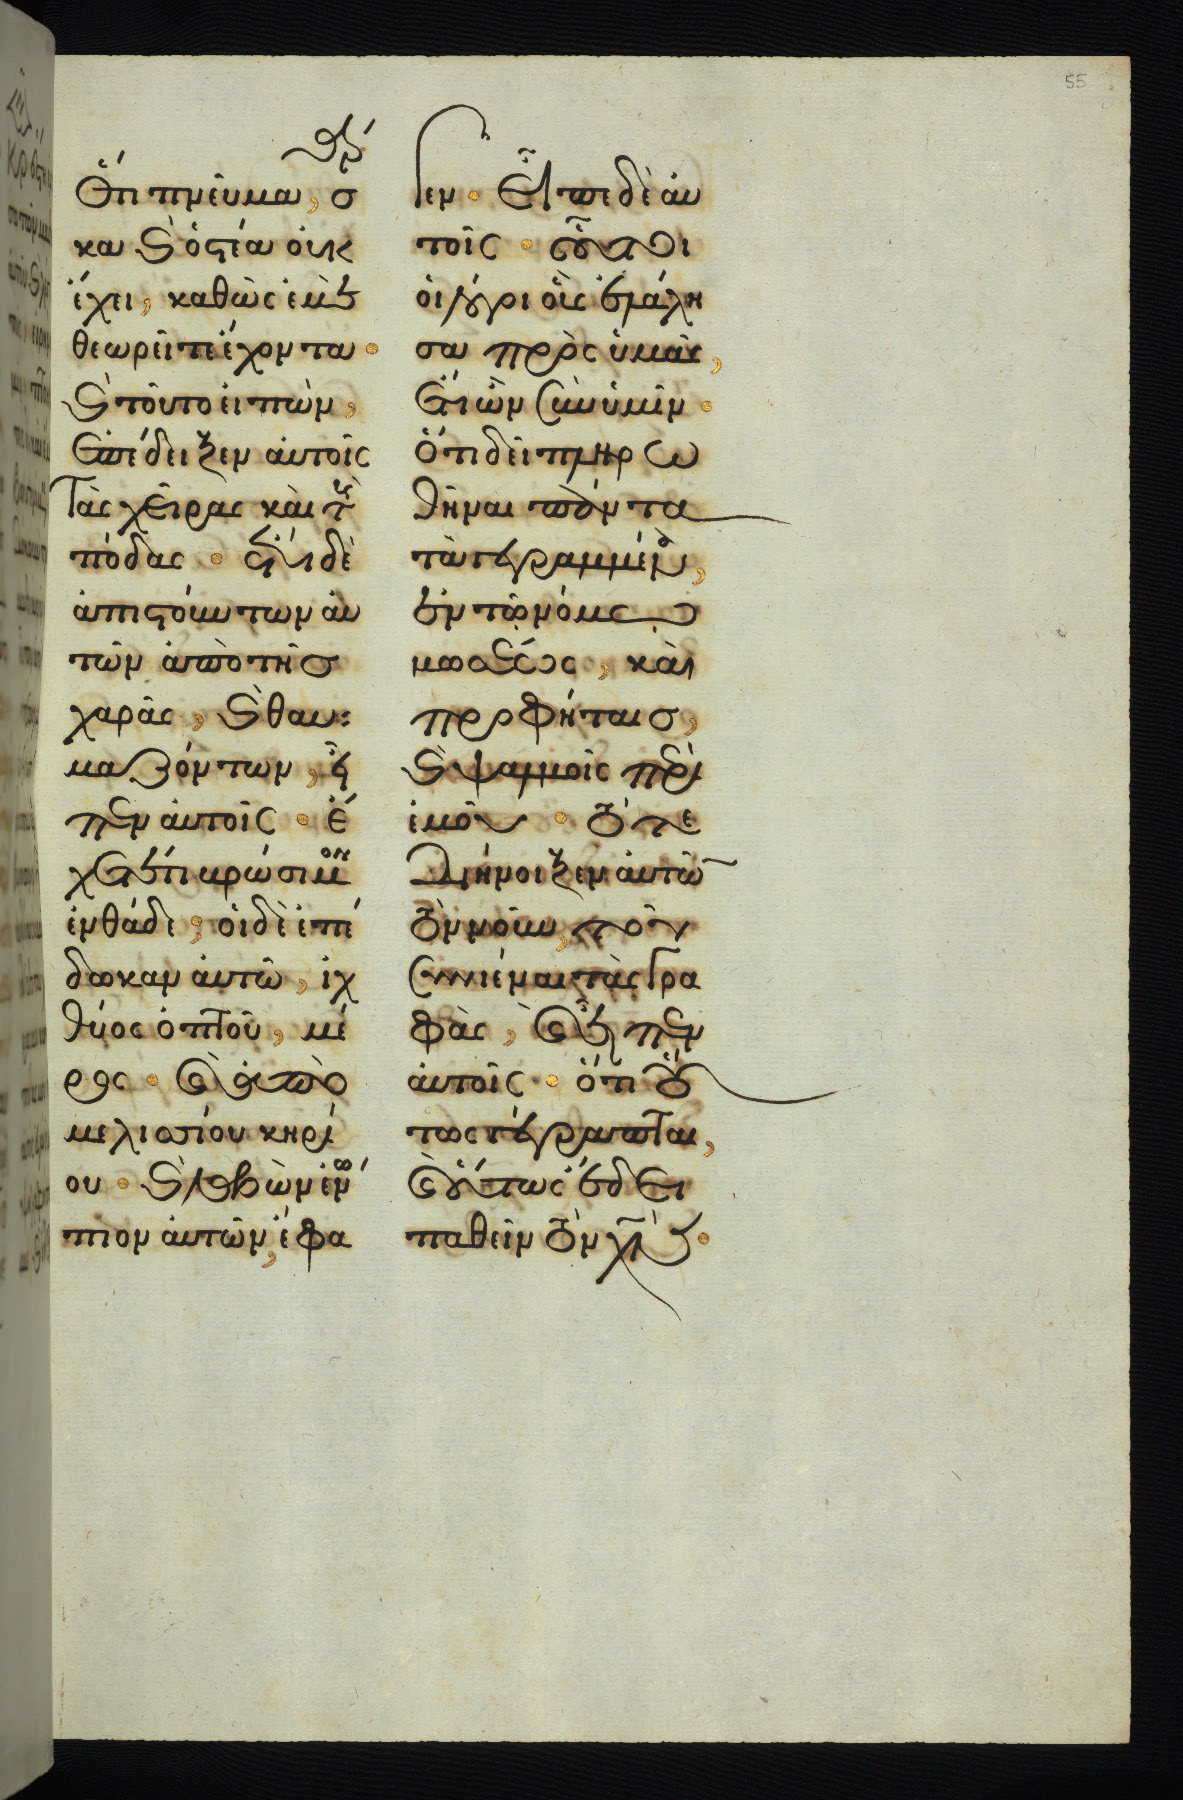 55
Ὅτι πνεῦμα, σάρ
κα καὶ ὀστέα οὐκ
ἔχει, καθὼς ἐμὲ
θεωρεῖτε ἔχοντα·
καὶ τοῦτο εἰπὼν,
ἐπέδειξεν αὐτοῖς
τὰς χεῖρας καὶ τοὺς
πόδας· ἔτι δὲ
ἀπιστούντων αὐ
τῶν ἀπὸ τῆς
χαρᾶς, καὶ θαυ:
μαζόντων, εἶ
πεν αὐτοῖς· ἔ
χετέ τι βρώσιμον
ἐνθάδε; οἱ δὲ ἐπέ
δωκαν αὐτῷ, ἰχ
θύος ὀπτοῦ, μέ
ρος· καὶ ἀπὸ
μελισσίου κηρί
ου· καὶ λαβὼν ἐνώ
πιον αὐτῶν, ἔφα
γεν· εἶπε δὲ αὐ
τοῖς· οὗτοι
οἱ λόγοι οὓς ἐλάλη
σα πρὸς ὑμᾶς,
ἔτι ὢν σὺν ὑμῖν·
ὅτι δεῖ πληρω
θῆναι πάντα
τὰ γεγραμμένα,
ἐν τῷ νόμῳ
μωσέως, καὶ
προφήταις,
καὶ ψαλμοῖς περὶ
ἐμοῦ· τότε
διήνοιξεν αὐτῶν
τὸν νοῦν, τοῦ
συνιέναι τὰς γρα
φάς, καὶ εἶπεν
αὐτοῖς· ὅτι οὕ
τως γέγραπται,
καὶ οὕτως ἔδει
παθεῖν τὸν χν